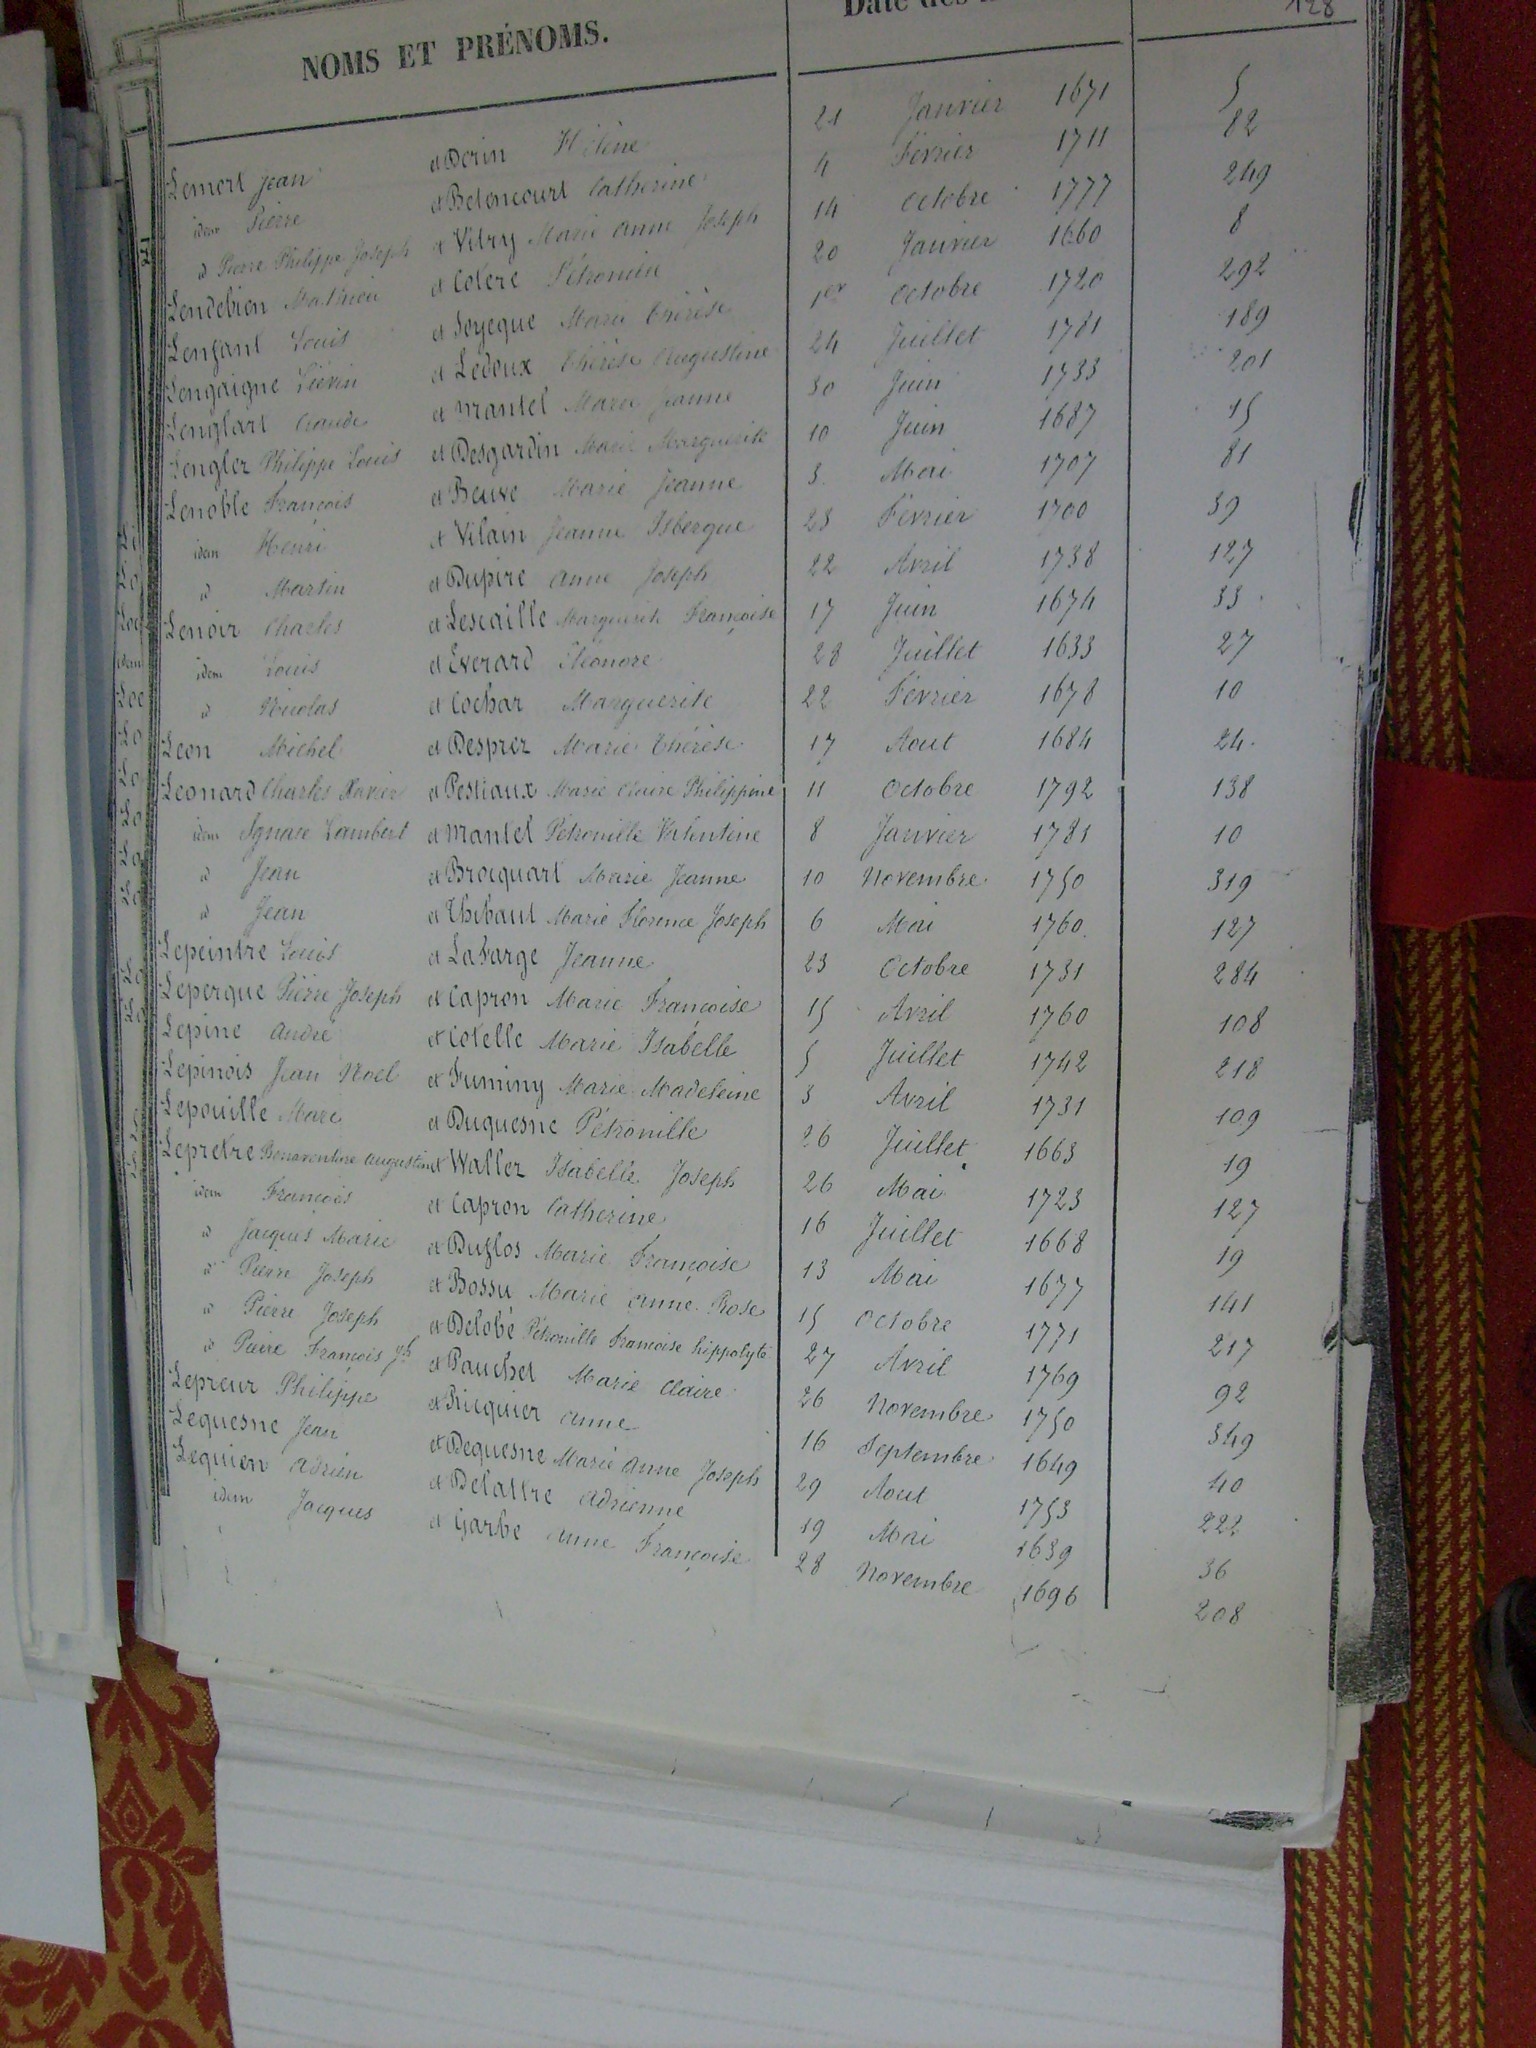 128
NOMS ET PRÉNOMS.
Date des
Lemort Jean et Derin Hélène 21 Janvier 1671 5
idem Pierre et Betencourt Catherine 4 Février 1711 82
id Pierre Philippe Joseph et Vitry Marie Anne Joseph 14 Octobre 1777 249
Lendebien Mathieu et Colere 20 Janvier 1660 8
Lenfant Louis et Soyeque Marie Thérèse 1er Octobre 1720 292
Lengaigne Liévin et Ledoux Thérèse Augustine 24 Juillet 1781 189
Lenglart Claude et Mantel Marie Jeanne 30 Juin 1733 201
Lengler Philippe Louis et Desgardin Marie Marguerite 10 Juin 1687 15
Lenoble François et Beuve Marie Jeanne 3 Mai 1707 81
idem Henri et Vilain Jeanne Isbergue 23 Février 1700 39
id Martin et Dupire Anne Joseph 22 Avril 1738 127
Lenoir Charles et Lescaille Marguerite Françoise 17 Juin 1674 33
idem Louis et Everard Eléonore 28 Juillet 1633 27
id Nicolas et Cochar Marguerite 22 Février 1678 10
Leon Michel et Desprez Marie Thérèse 17 Aout 1684 24
Leonard Charles Xavier et Pestiaux Marie Claire Philippine 11 Octobre 1792 138
idem Ignace Lambert et Mantel Pétronille Valentine 8 Janvier 1781 10
id Jean et Brocquart Marie Jeanne 10 Novembre 1750 319
id Jean et Thibaut Marie Florence Joseph 6 Mai 1760 127
Lepeintre Louis et Lafarge Jeanne 23 Octobre 1731 284
Leperque Pierre Joseph et Capron Marie Françoise 15 Avril 1760 108
Lepine André et Cotelle Marie Isabelle 5 Juillet 1742 218
Lepinois Jean Noel et Fuminy Marie Madeleine 3 Avril 1731 109
Lepouille Marc et Duquesne Pétronille 26 Juillet 1663 19
Lepretre Bonaventure Augustin et Waller Isabelle Joseph 26 Mai 1723 127
idem François et Capron Catherine 16 Juillet 1668 19
id Jacques Marie et Duflos Marie Françoise 13 Mai 1677 141
id Pierre Joseph et Bossu Marie Anne Rose 15 Octobre 1771 217
id Pierre Joseph et Delobé Pétronille Françoise hippolyte 27 Avril 1769 92
id Pierre François Jh et Pauchet Marie Claire 26 Novembre 1750 349
Lepreur Philippe et Ricquier Anne 16 Septembre 1649 40
Lequesne Jean et Dequesne Marie Anne Joseph 29 Aout 1753 222
Lequien Adrien et Delattre Adrienne 19 Mai 1639 36
idem Jacques et Garbe Anne Françoise 28 Novembre 1696 208